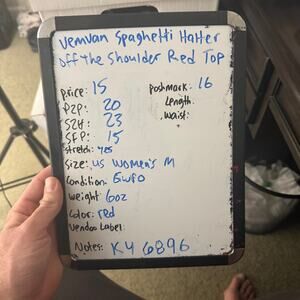 Vemvan Spaghetti Halter
off the Shoulder Red Top
Price: 15
Poshmark: 16
P2P: 20
Length:
S2H: 23
Waist:
SFP: 15
Stretch: yes
Size: US Women's M
Condition: EUFO
Weight: 6oz
Color: red
Vendoo Label:
Notes: KY 6896